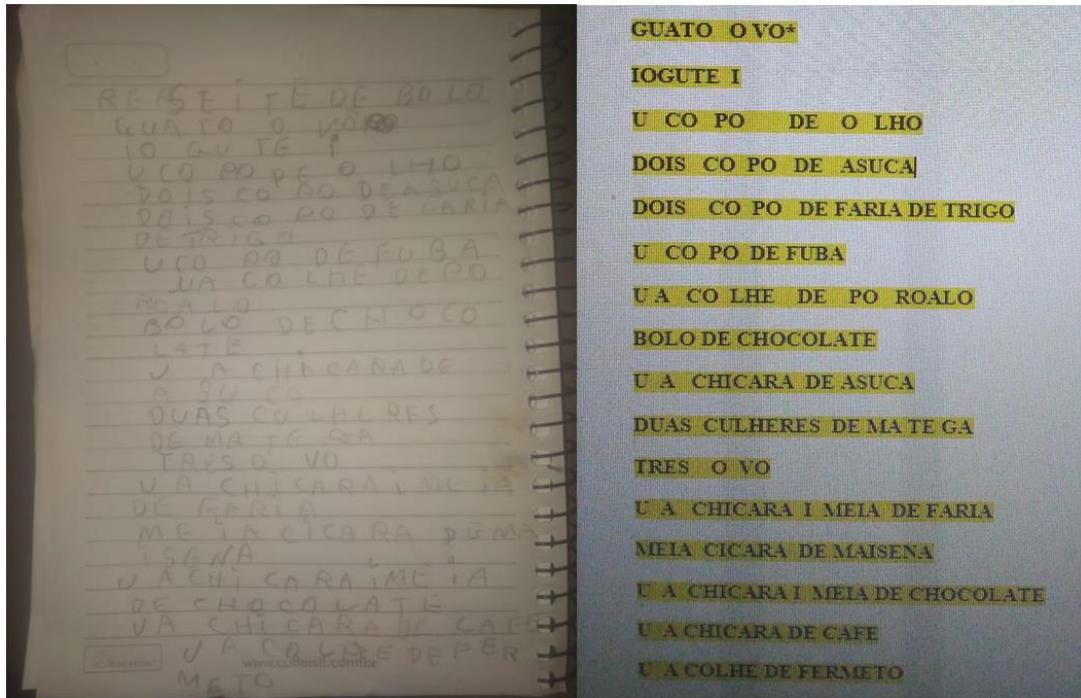 REFSEITE DE BOLO
GUATO O VO
IO GUTE I
U CO PO DE O LHO
DOIS CO PO DE ASUCA
DOIS CO PO DE FARIA
DE TRIGO
U CO PO DE FUBA
UA CO LHE DE PO
ROALO
BOLO DE CHOCO
LATE
U A CHICARA DE
A SU CA
DUAS CU LHERES
DE MA TE GA
TRES O VO
U A CHICARA I MEIA
DE FARIA
MEIA CICARA DE MA
ISENA
U A CHI CARA I MEIA
DE CHOCOLATE
UA CHICARA DE CAFE
U A COLHE DE FER
METO
GUATO O VO*
IOGUTE I
U CO PO DE O LHO
DOIS CO PO DE ASUCA
DOIS CO PO DE FARIA DE TRIGO
U CO PO DE FUBA
U A CO LHE DE PO ROALO
BOLO DE CHOCOLATE
U A CHICARA DE ASUCA
DUAS CULHERES DE MA TE GA
TRES O VO
U A CHICARA I MEIA DE FARIA
MEIA CICARA DE MAISENA
U A CHICARA I MEIA DE CHOCOLATE
U A CHICARA DE CAFE
U A COLHE DE FERMETO